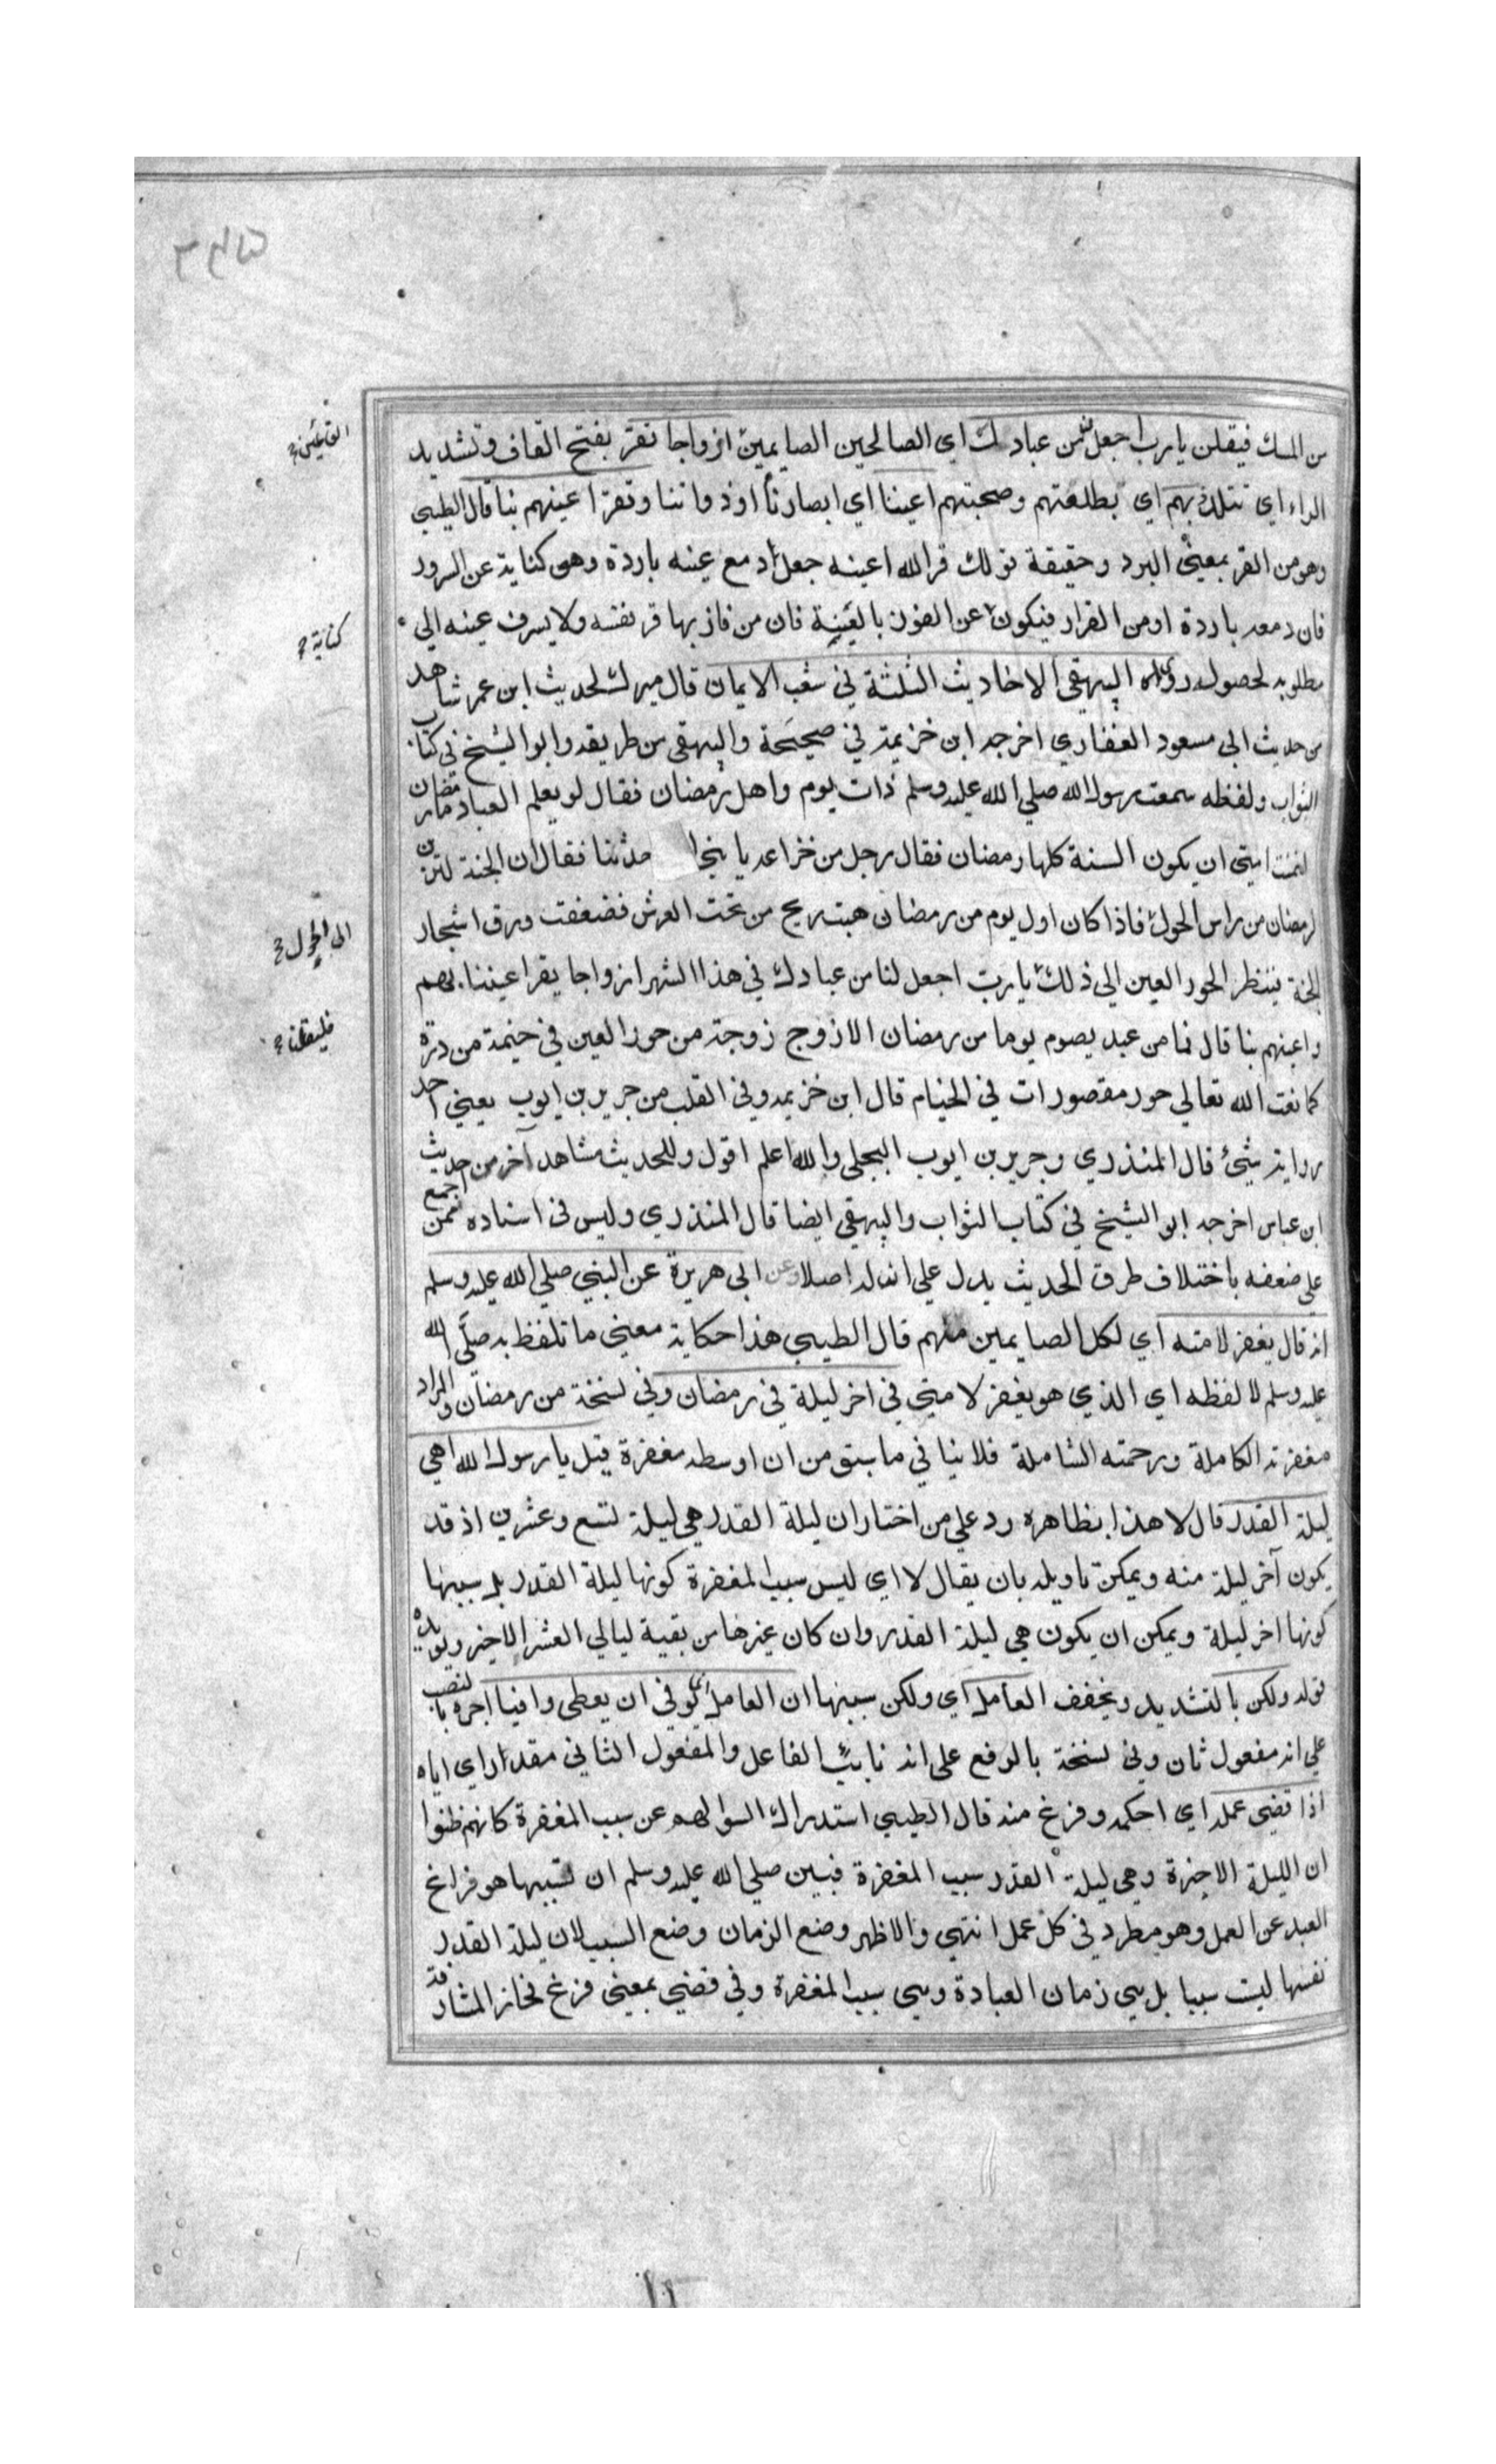 من المسك فيقلن يا رب اجعل لنا من عبادك اي الصالحين الصايمين ازواجا تقر بفتح القاف وتشديد
القائمين
الراء اي تتلذذ بهم اي بطلعتهم وصحبتهم اعيننا اي ابصارنا او ذواتنا وتقر اعينهم بنا قال الطيبي
وهو من القر بمعنى البرد وحقيقة قولك قر الله اعينه جعل دمع عينه باردة وهو كناية عن السرور
فان دمعه باردة او من القرار فيكون عن الفوز بالغنية فان من فاز بها قر نفسه ولا يسرف عينه الى
كناية
مطلوبه لحصوله روى البيهقي الاحاديث الثلثة في شعب الايمان قال ميرك لحديث ابن عمر شاهد
من حديث ابى مسعود الغفاري اخرجه ابن خزيمة في صحيحة والبيهقي من طريقه وابو الشيخ في كتاب
الثواب ولفظه سمعت رسول الله صلي الله عليه وسلم ذات يوم واهل رمضان فقال لو يعلم العباد ما رمضان
لتمنت امتي ان يكون السنة كلها رمضان فقال رجل من خزاعه يا حدثنا فقال ان الجنة لتزين
لرمضان من راس الحول فاذا كان اول يوم من رمضان هبت ريح من تحت العرش فصفقت ورق اشجار
الى الحول
الجنة ينتظر الحور العين الى ذلك يا رب اجعل لنا من عبادك في هذا الشهر ازواجا يقر اعيننا بهم
فليقلن
واعينهم بنا قال فما من عبد يصوم يوما من رمضان الا زوج زوجة من حور العين في خيمة من درة
كما نعت الله تعالى حور مقصورات في الخيام قال ابن خزيمه وفي القلب من جرير بن ايوب يعني احد
رواية شئ قال المنذري وجرير بن ايوب البجلى والله اعلم اقول وللحديث شاهد آخر من حديث
ابن عباس اخرجه ابو الشيخ في كتاب الثواب والبيهقي ايضا قال المنذري وليس في اسناده من اجمع
على ضعفه باختلاف طرق الحديث يدل علي ان له اصلا وعن ابى هريرة عن النبي صلي الله عليه وسلم
انه قال يغفر لامته اي لكل الصايمين منهم قال الطيبي هذا حكاية معنى ما تلفظ به صلى الله
عليه وسلم لا لفظه اي الذي هو يغفر لامتي في اخر ليلة في رمضان وفي نسخة من رمضان والمراد
مغفرته الكاملة ورحمته الشاملة فلا ينافي ما سبق من ان اوسطه مغفرة قيل يا رسول الله اهي
ليلة القدر قال لا هذا بظاهره رد علي من اختار ان ليلة القدر هي ليلة تسع وعشرين اذ قد
يكون آخر ليلة منه ويمكن تاويله بان يقال لا اي ليس سبب المغفرة كونها ليلة القدر بل سببها
كونها اخر ليلة ويمكن ان يكون هي ليلة القدر وان كان غيرها من بقية ليالي العشر الاخير ويؤيده
قوله ولكن بالتشديد ويخفف العامل اي ولكن سببها ان العامل انما يوفى ان يعطى وافيا اجره بالنصب
علي انه مفعول ثان وفي نسخة بالرفع على انه نايب الفاعل والمفعول الثاني مقدر اي اياه
اذا قضى عمله اي احكمه وفرغ منه قال الطيبي استدراك السوالهم عن سبب المغفرة كانهم ظنوا
ان الليلة الاخيرة وهي ليلة القدر سبب المغفرة فبين صلي الله عليه وسلم ان سببها هو فراغ
العبد عن العمل وهو مطرد في كل عمل انتهى والاظهر وضع الزمان وضع السبب لان ليلة القدر
نفسها ليست سببا بل هي زمان العبادة وهي سبب المغفرة وفي قضي بمعنى فرغ فجاز المشارفة